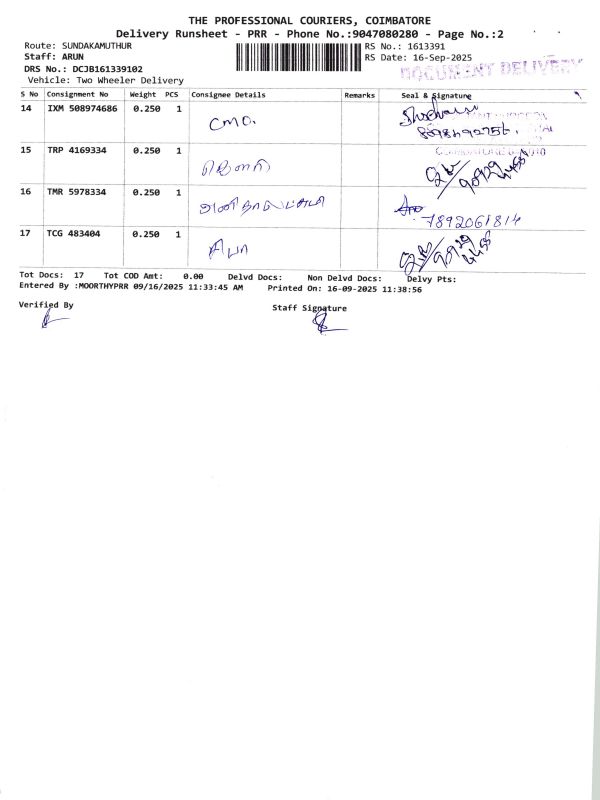 THE PROFESSIONAL COURIERS, COIMBATORE
Delivery Runsheet - PRR - Phone No.:9047080280 - Page No.:2
Route: SUNDAKAMUTHUR
RS No.: 1613391
Staff: ARUN
RS Date: 16-Sep-2025
DRS No.: DCJB161339102
DOCUMENT DELIVERY
Vehicle: Two Wheeler Delivery
S No Consignment No Weight PCS Consignee Details Remarks Seal & Signature
14 IXM 508974686 0.250 1 CMO.
15 TRP 4169334 0.250 1
16 TMR 5978334 0.250 1
7892061814
17 TCG 483404 0.250 1
Tot Docs: 17 Tot COD Amt: 0.00 Delvd Docs: Non Delvd Docs: Delvy Pts:
Entered By :MOORTHYPRR 09/16/2025 11:33:45 AM Printed On: 16-09-2025 11:38:56
Verified By
Staff Signature